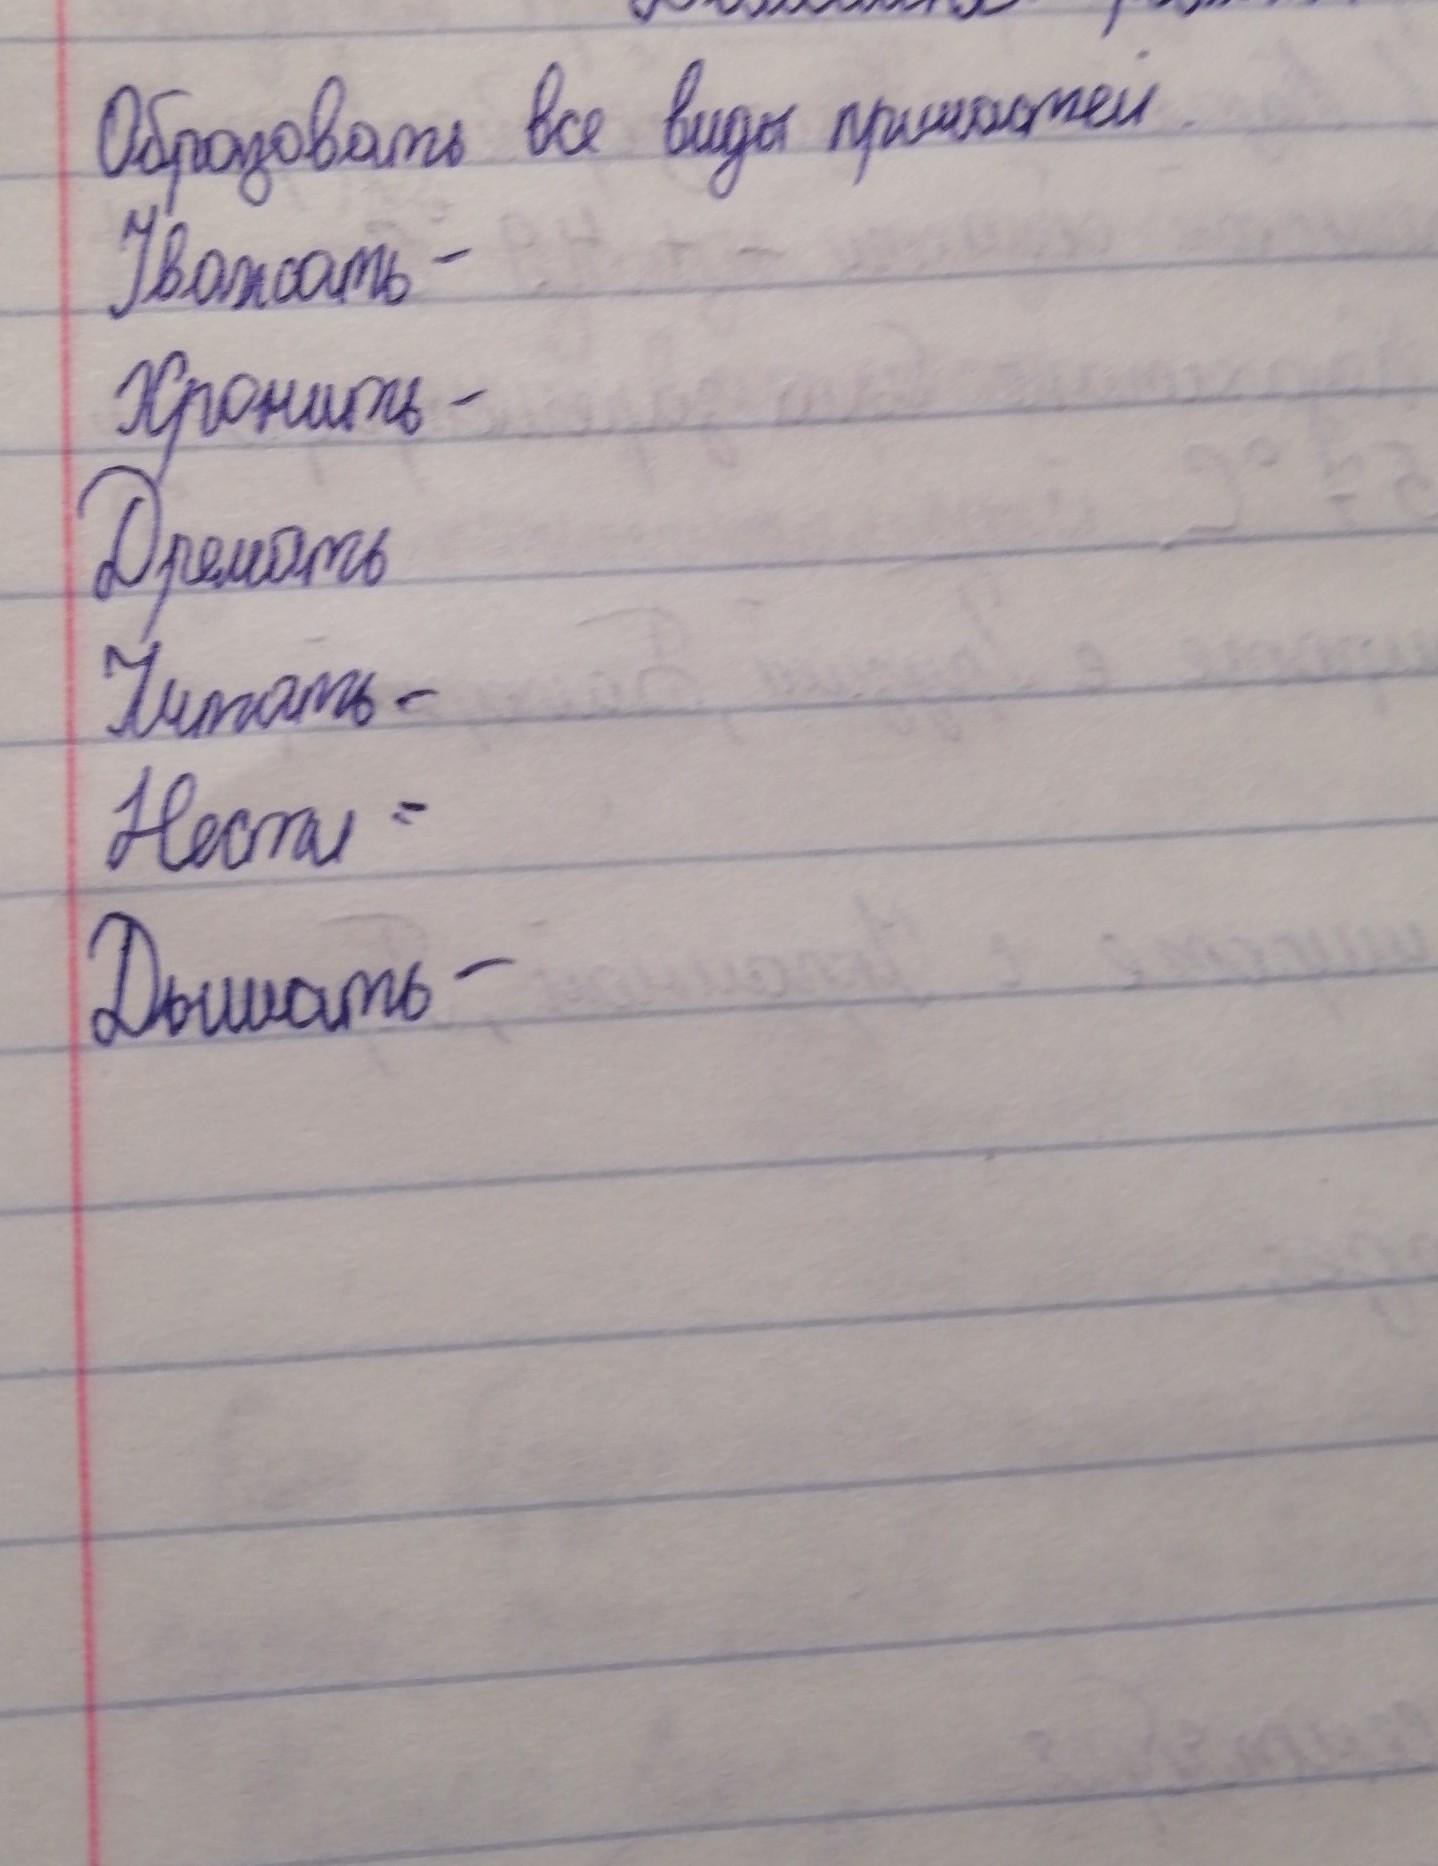 Образовать все виды причастей.
Уважать -
Хронить -
Дремать
Читать -
Нести =
Дышать -